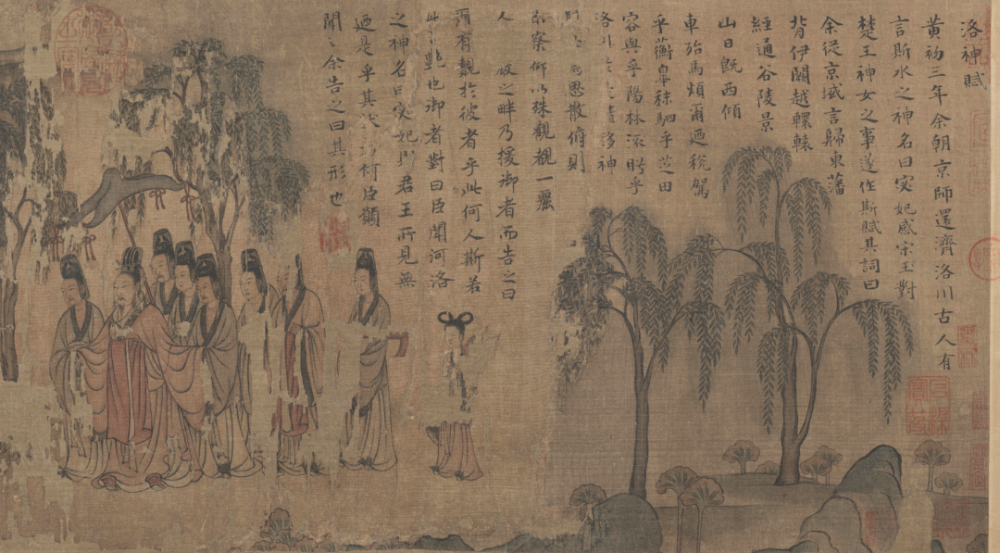 洛神賦
黄初三年余朝京師還濟洛川古人有
言斯水之神名曰宓妃感宋玉對
楚王神女之事遂作斯賦其詞曰
余從京域言歸東藩
背伊闕越轘轅
經通谷陵景
山日既西傾
車殆馬煩爾迺稅駕
乎蘅皐秣駟乎芝田
容與乎陽林流眄乎
洛川於 移神
思散俯則
未察仰以殊觀覩一麗
人 之畔乃援御者而告之曰
爾有覿於彼者乎此何人斯若
此艷也御者對曰臣聞河洛
之神名曰宓妃 君王所見無
迺是乎其狀 何臣願
聞之余告之曰其形也